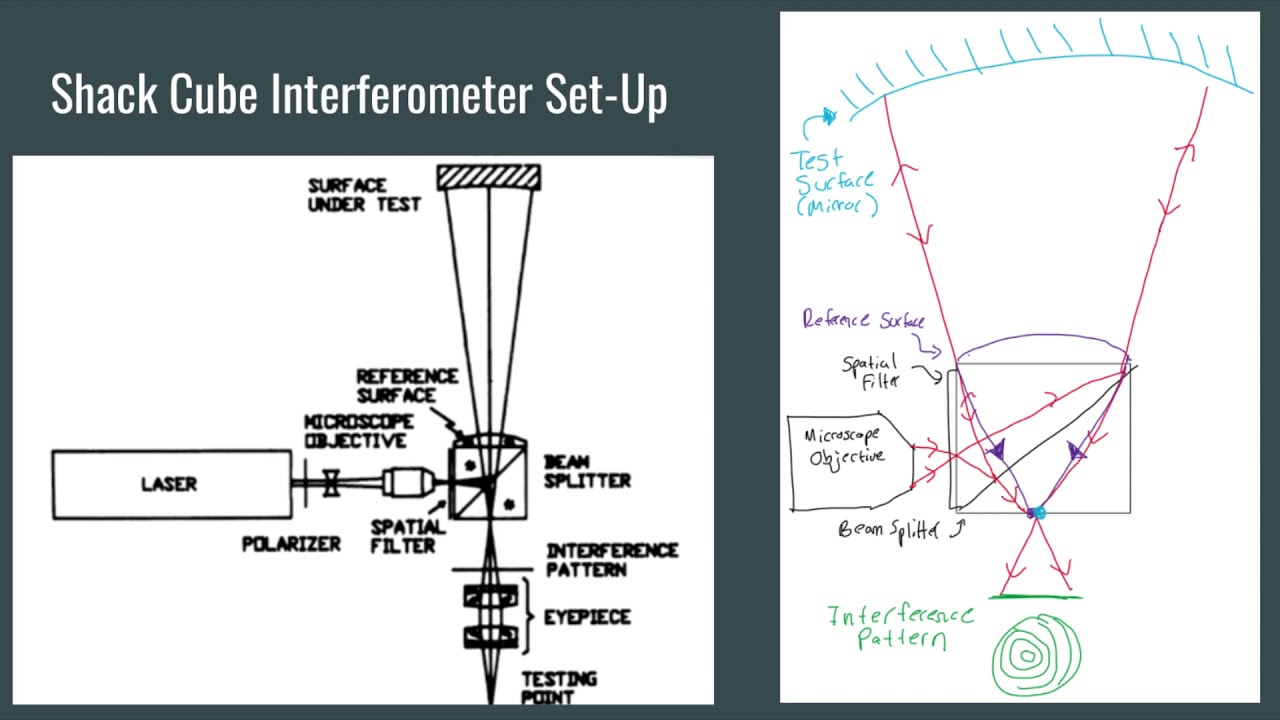 Shack Cube Interferometer Set-Up
SURFACE
UNDER TEST
REFERENCE
SURFACE
MICROSCOPE
OBJECTIVE
BEAM
SPLITTER
LASER
SPATIAL
FILTER
POLARIZER
INTERFERENCE
PATTERN
EYEPIECE
TESTING
POINT
Test
Surface
(Mirror)
Reference Surface
Spatial
Filter
Microscope
Objective
Beam Splitter
Interference
Pattern